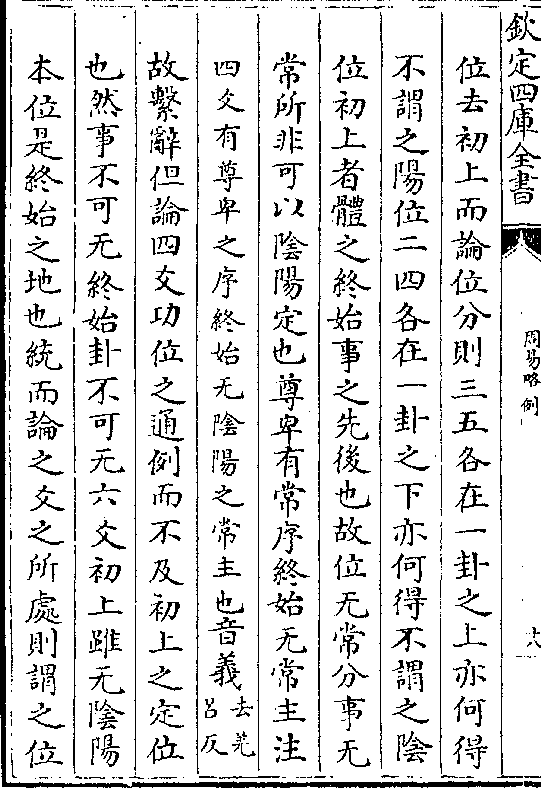 欽定四庫全書
周易略例
十八
位去初上而論位分則三五各在一卦之上亦何得
不謂之陽位二四各在一卦之下亦何得不謂之陰
位初上者體之終始事之先後也故位无常分事无
常所非可以陰陽定也尊卑有常序終始无常主注
四爻有尊卑之序終始无陰陽之常主也音義去羌
呂反
故繫辭但論四爻功位之通例而不及初上之定位
也然事不可无終始卦不可无六爻初上雖无陰陽
本位是終始之地也統而論之爻之所處則謂之位